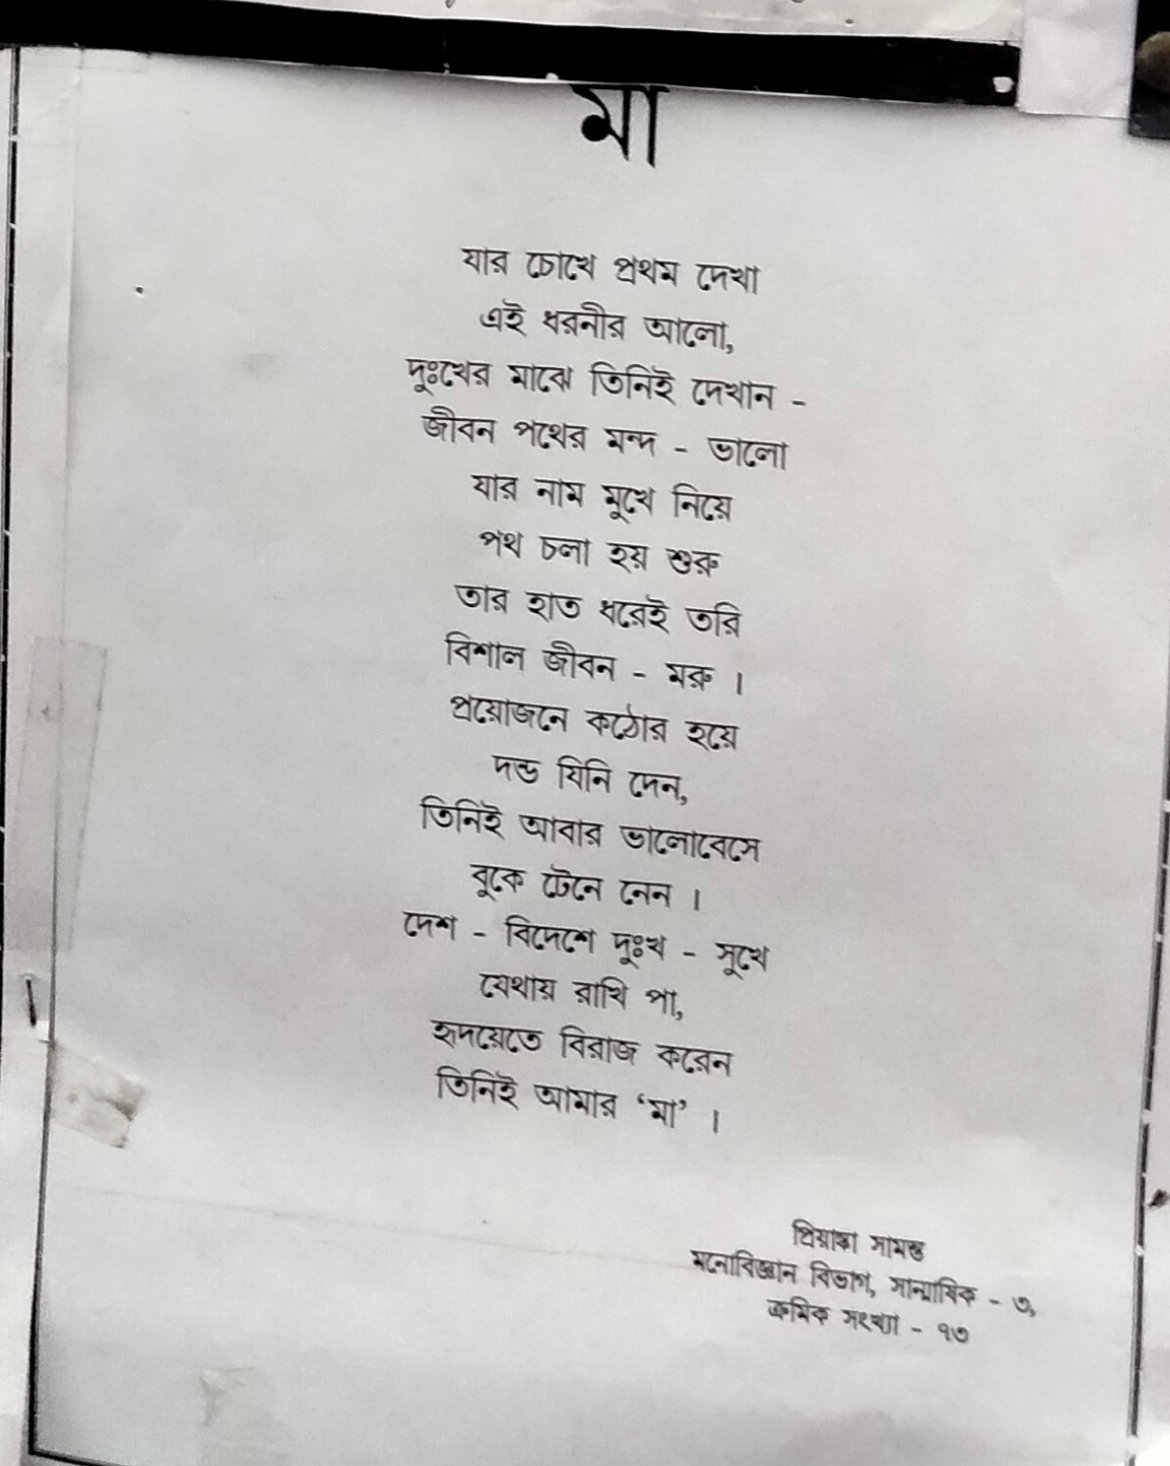 মা
যার চোখে প্রথম দেখা
এই ধরনীর আলো,
দুঃখের মাঝে তিনিই দেখান -
জীবন পথের মন্দ - ভালো
যার নাম মুখে নিয়ে
পথ চলা হয় শুরু
তার হাত ধরেই তরি
বিশাল জীবন - মরু ।
প্রয়োজনে কঠোর হয়ে
দন্ড যিনি দেন,
তিনিই আবার ভালোবেসে
বুকে টেনে নেন ।
দেশ - বিদেশে দুঃখ - সুখে
যেথায় রাখি পা,
হৃদয়েতে বিরাজ করেন
তিনিই আমার ‘মা’ ।
প্রিয়াঙ্কা সামন্ত
মনোবিজ্ঞান বিভাগ, সান্মাষিক - ৩,
ক্রমিক সংখ্যা - ১৩